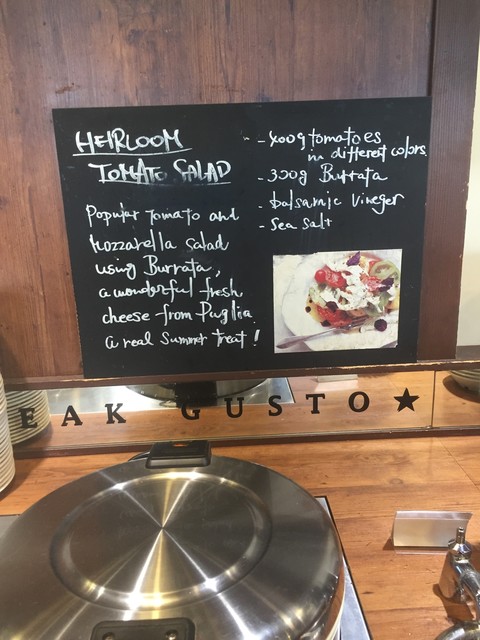 HEIRLOOM
TOMATO SALAD
Popular tomato and
Mozzarella salad
using Burrata,
a wonderful fresh
cheese from Puglia.
a real Summer treat!
- 400g tomatoes
in different colors.
- 300g Burrata
- balsamic vineger
- Sea salt
EAK GUSTO★